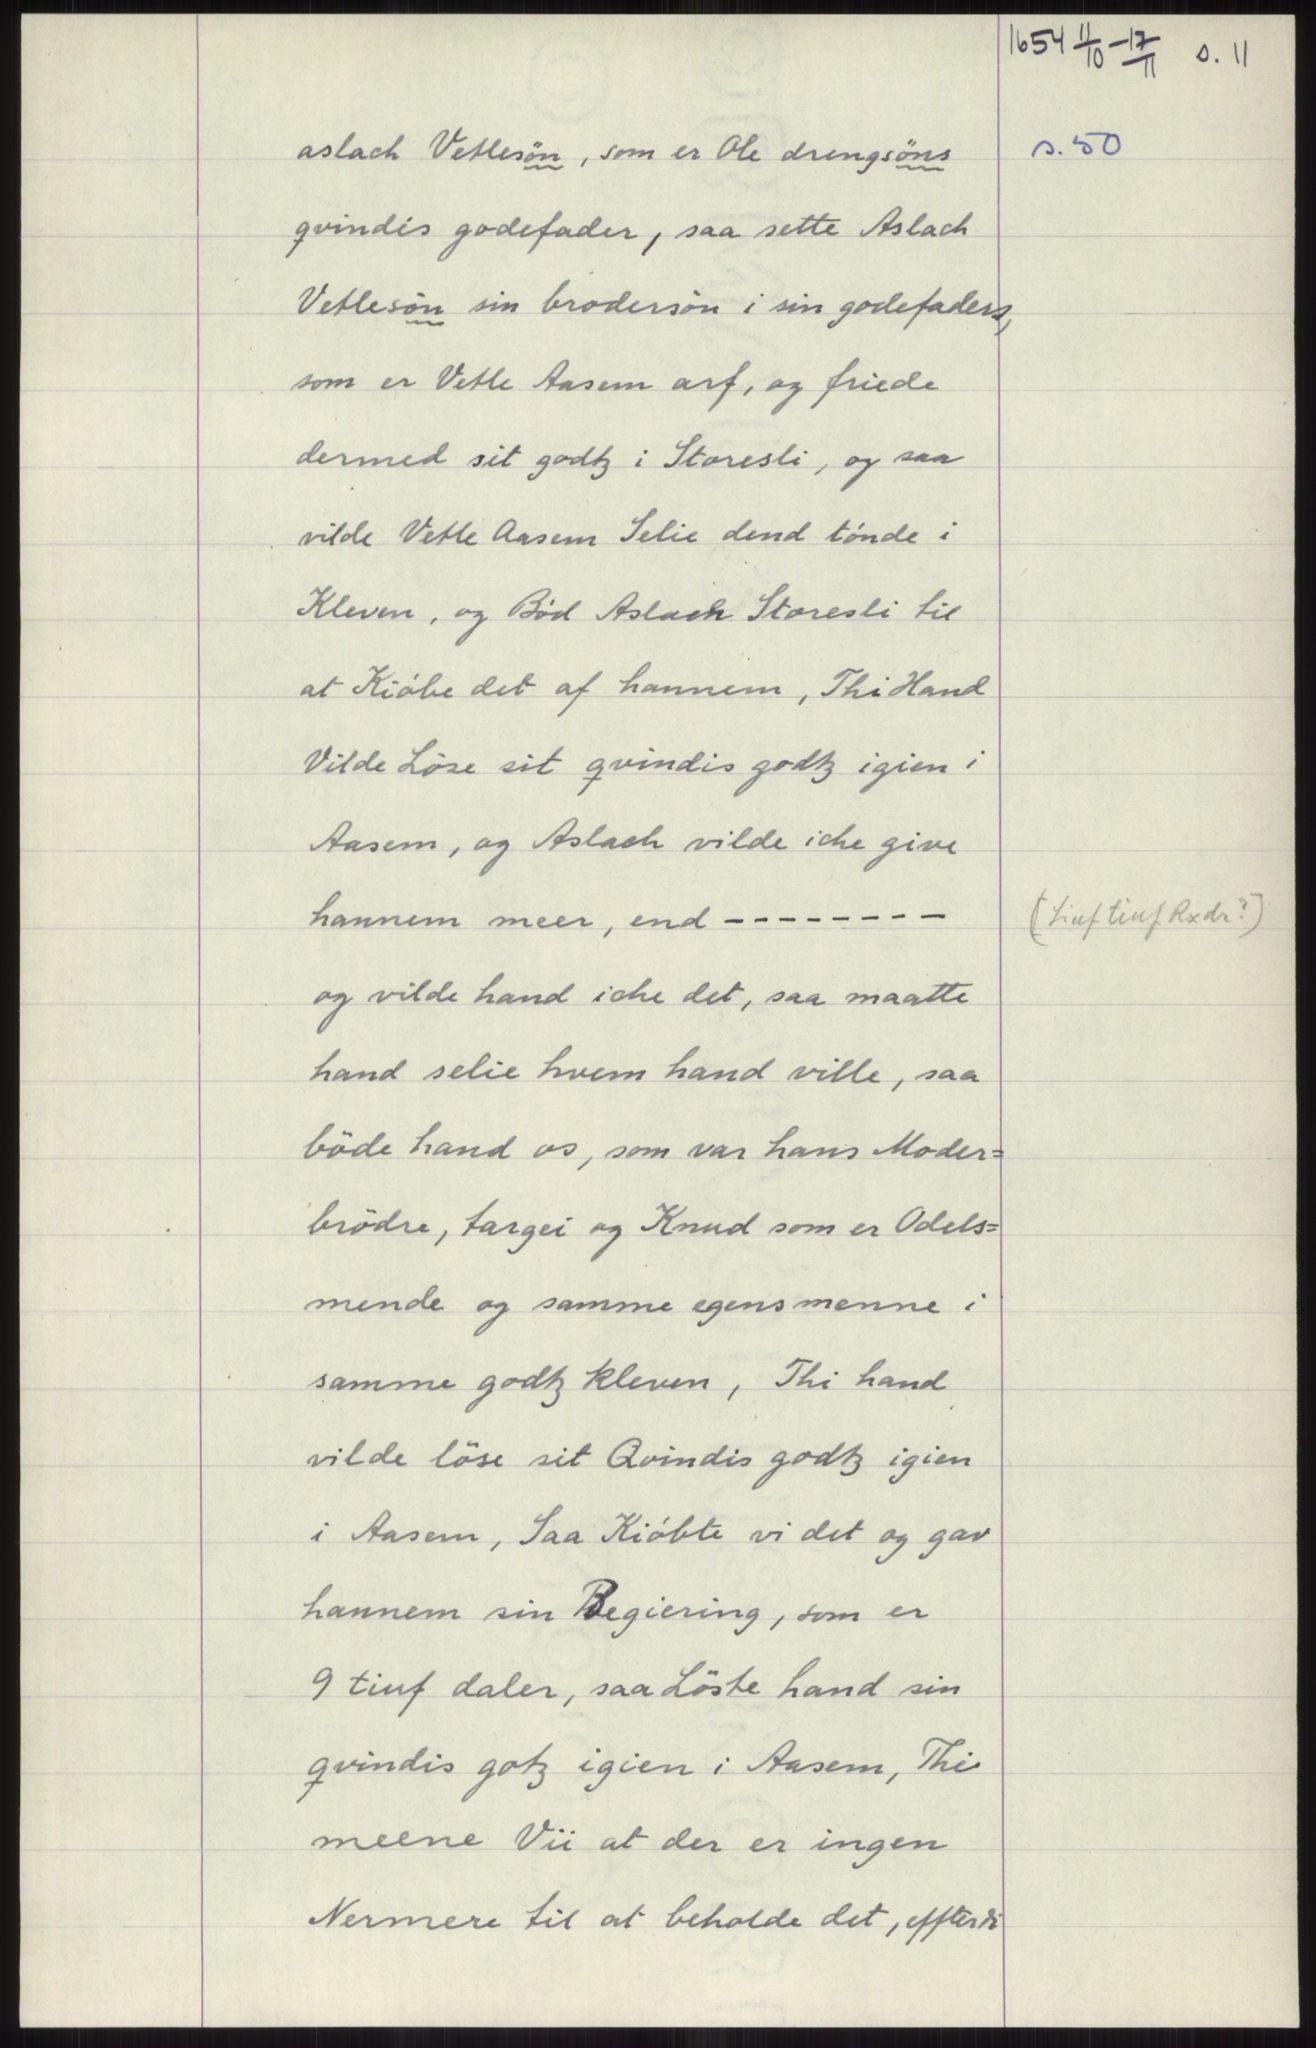 1654 11/10 - 17/11 s. 11
s. 50
aslach Vetlesön, som er Ole drengsöns
qvindis godefader, saa sette Aslach
Vetlesön sin brodersön i sin godefaders,
som er Vetle Aasem arf, og friede
dermed sit godtz i Storesli, og saa
vilde Vetle Aasem Selie dend tónde i
Kleven, og Bód Aslach Storesli til
at Kióbe det af hannem, Thi Hand
Vilde Löse sit qvindis godtz igien i
Aasem, og Aslach vilde iche give
hannem meer, end --------
(tiuf Rxdr?)
og vilde hand iche det, saa maatte
hand selie hvem hand ville, saa
böde hand os, som var hans Moder=
brödre, targei og Knud som er Odels=
mende og samme egensmenne i
samme godtz kleven, Thi hand
vilde löse sit Qvindis godtz igien
i Aasem, Saa Kióbte vi det og gav
hannem sin Begiering, som er
9 tiuf daler, saa Löste hand sin
qvindis gotz igien i Aasem, Thi
meene Vii at der er ingen
Nermere til at beholde det, effterdi